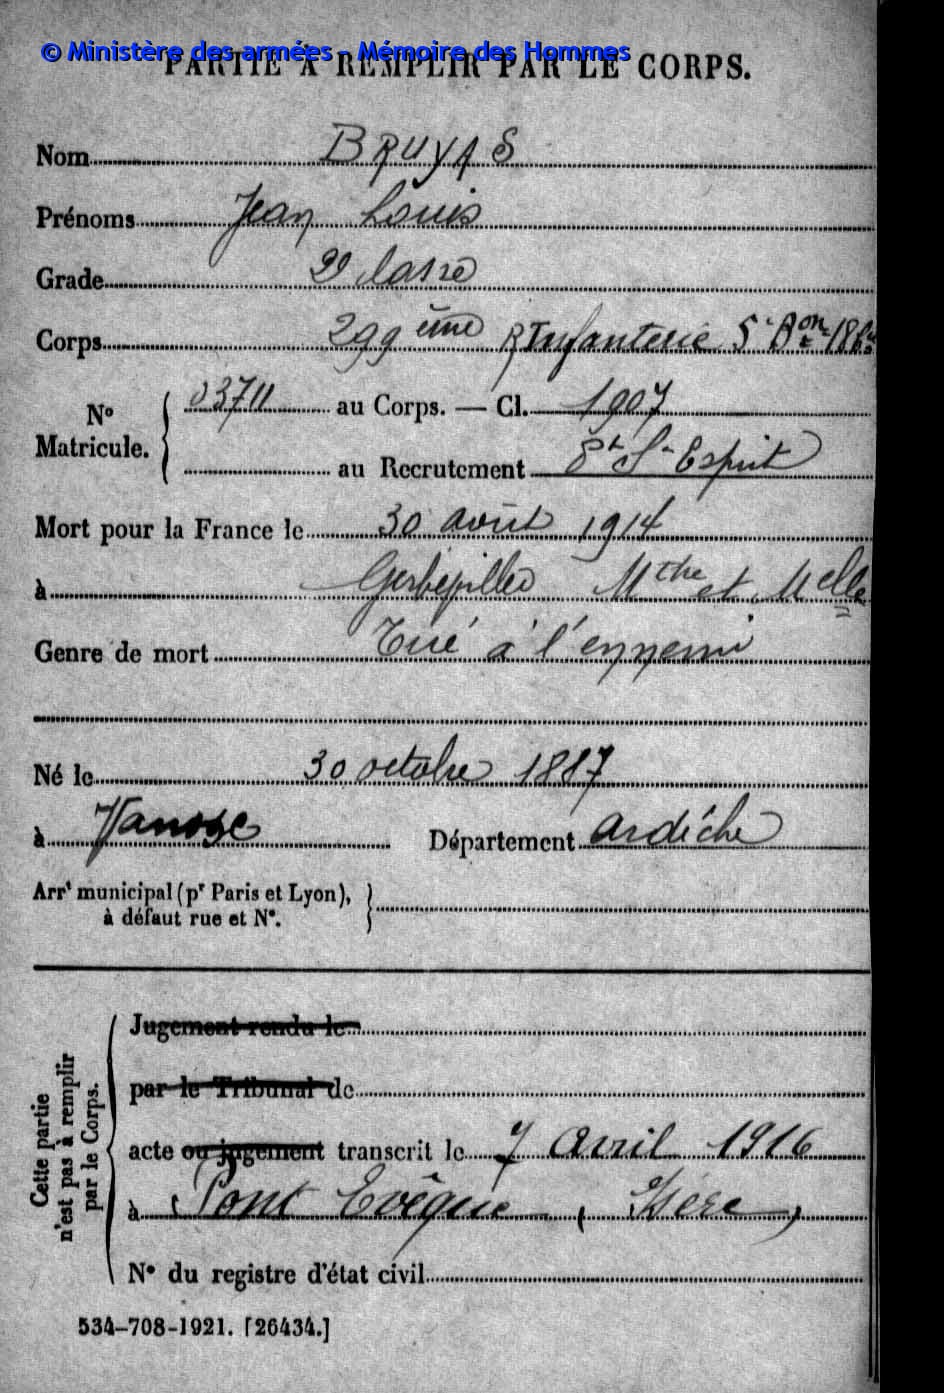 © Ministère des armées - Mémoire des Hommes
PARTIE À REMPLIR PAR LE CORPS.
Nom BRUYAS
Prénoms Jean Louis
Grade 2e classe
Corps 299ème R Infanterie
N° Matricule. 03711 au Corps. — Cl. 1907
au Recrutement Pt St Esprit
Mort pour la France le 30 août 1914
à Gerbéviller Mthe et Melle
Genre de mort Tué à l'ennemi
Né le 30 octobre 1887
à Vanosc Département ardèche
Arrt municipal (pr Paris et Lyon),
à défaut rue et N°.
Cette partie
n'est pas à remplir
par le Corps.
Jugement rendu le
par le Tribunal de
acte ou jugement transcrit le 7 Avril 1916
à Pont Evêque (Isère)
N° du registre d'état civil
534-708-1921. [26434.]